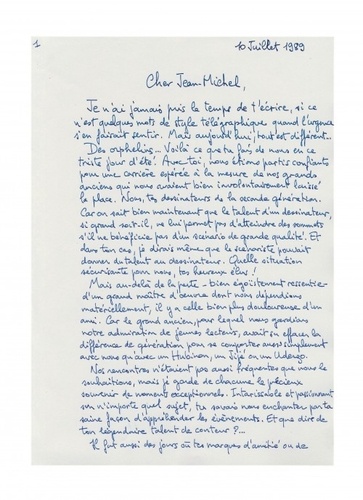 1
10 Juillet 1989
Cher Jean-Michel,
Je n'ai jamais pris le temps de t'écrire, si ce
n'est quelques mots de style télégraphique quand l'urgence
s'en faisait sentir. Mais aujourd'hui, tout est différent..
Des orphelins.. Voilà ce que tu fais de nous en ce
triste jour d'été. Avec toi, nous étions partis confiants
pour une carrière espérée à la mesure de nos grands
anciens qui nous avaient bien involontairement laissé
la place. Nous, tes dessinateurs de la seconde génération.
Car on sait bien maintenant que le talent d'un dessinateur,
si grand soit-il, ne lui permet pas d'atteindre des sommets
s'il ne bénéficie pas d'un scénario de grande qualité. Et
dans ton cas, je dirais même que le scénariste pouvait
donner du talent au dessinateur. Quelle situation
sécurisante pour nous, tes heureux élus !
Mais au-delà de la perte - bien égoïstement ressentie -
d'un grand maître d'œuvre dont nous dépendions
matériellement, il y a celle bien plus douloureuse d'un
ami. Car le grand ancien, pour lequel nous gardions
notre admiration de jeunes lecteurs, avait su effacer la
différence de génération pour se comporter aussi simplement
avec nous qu'avec un Hubinon, un Jijé ou un Uderzo.
Nos rencontres n'étaient pas aussi fréquentes que nous le
souhaitions, mais je garde de chacune le précieux
souvenir de moments exceptionnels. Intarissable et passionnant
sur n'importe quel sujet, tu savais nous enchanter par ta
saine façon d'appréhender les événements. Et que dire de
ton légendaire talent de conteur ?...
Il fut aussi des jours où tes marques d'amitié ou de